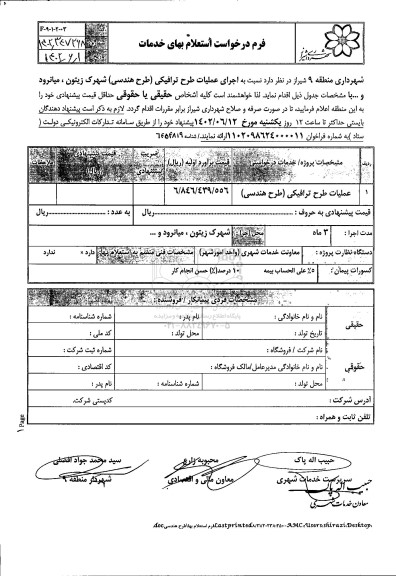 ف-۹-۰۱-۲-۳
فرم درخواست استعلام بهای خدمات
شهرداری منطقه ۹ شیراز در نظر دارد نسبت به اجرای عملیات طرح ترافیکی (طرح هندسی) شهرک زیتون ، میانرود
و ...با مشخصات جدول ذیل اقدام نماید. لذا خواهشمند است کلیه اشخاص حقیقی یا حقوقی حداقل قیمت پیشنهادی خود را
به این منطقه اعلام فرمایید، تا در صورت صرفه و صلاح شهرداری شیراز برابر مقررات اقدام گردد. لازم به ذکر است پیشنهاد دهندگان
بایستی حداکثر تا ساعت ۱۲ روز یکشنبه مورخ ۱۴۰۲/۰۶/۱۲ پیشنهاد خود را از طریق سامانه تدارکات الکترونیکی دولت (
ستاد )به شماره فراخوان ۱۱۰۲۰۹۸۶۲۴۰۰۰۰۱۱ ارائه نمایند/
ردیف مشخصات پروژه/ خدمات درخواستی قیمت برآورد اولیه (ریال) ضریب پیشنهادی ملاحظات
۱ عملیات طرح ترافیکی (طرح هندسی) ۶/۸۴۶/۴۳۹/۵۵۶
قیمت پیشنهادی به حروف : ریال به عدد : ریال
مدت اجرا : ۳ ماه محل اجرا: شهرک زیتون ، میانرود و ...
دستگاه نظارت پروژه : معاونت خدمات شهری (واحد امورشهر) مشخصات فنی منضم به استعلام بها: دارد × ندارد
کسورات پیمان : ۵٪ علی الحساب بیمه ۱۰ درصد(٪) حسن انجام کار
مشخصات فردی پیمانکار / فروشنده :
حقیقی
نام و نام خانوادگی : نام پدر : شماره شناسنامه :
تاریخ تولد : محل تولد : کد ملی :
حقوقی
نام شرکت / فروشگاه : شماره ثبت شرکت :
نام و نام خانوادگی مدیرعامل/مالک فروشگاه : کد اقتصادی :
محل تولد : شماره شناسنامه : نام پدر :
آدرس شرکت : کدپستی شرکت:
تلفن ثابت و همراه :
حبیب اله پاک
سرپرست خدمات شهری
معاون مالی و اقتصادی
سید محمد جواد افضلی
شهردار منطقه ۹
حبیب اله پاک
معاون خدمات شهری
Page 1